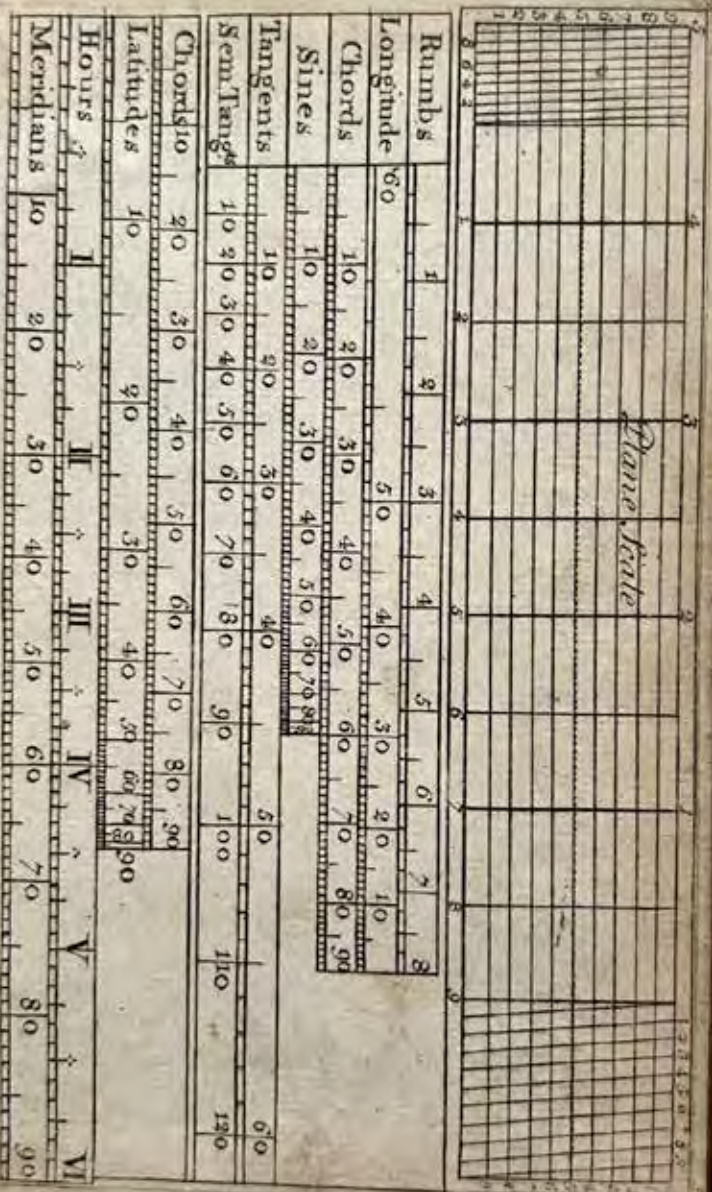 4 3 2 1
Plane Scale
8 6 4 2 1 2 3 4 5 6 7 8 9
Rumbs 1 2 3 4 5 6 7 8
Longitude 60 50 40 30 20 10
Chords 10 20 30 40 50 60 70 80 90
Sines 10 20 30 40 50 60 70 80
Tangents 10 20 30 40 50 60
Sem Tangts 10 20 30 40 50 60 70 80 90 100 110 120
Chords 10 20 30 40 50 60 70 80 90
Latitudes 10 20 30 40 50 60 70 80 90
Hours I II III IV V VI
Meridians 10 20 30 40 50 60 70 80 90